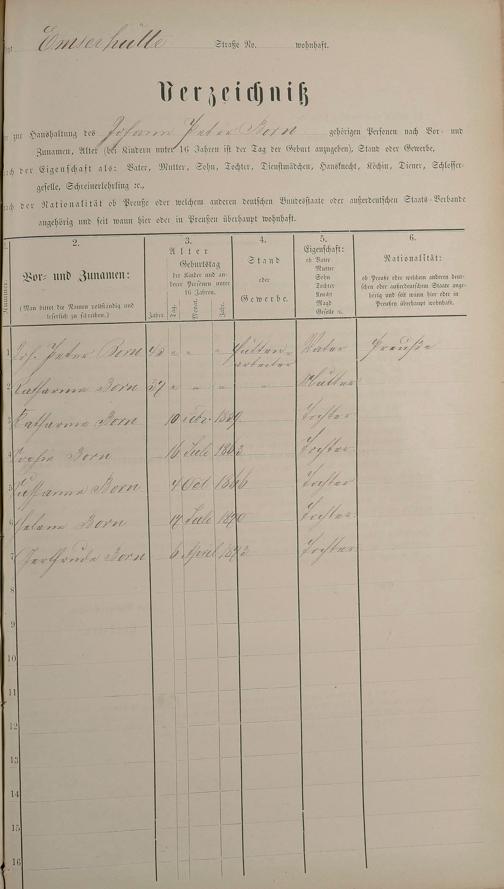 Emserhütte Straße No. wohnhaft.
Verzeichniß
zur Haushaltung des Johann Peter Born gehörigen Personen nach Vor- und
Zunamen, Alter (bei Kindern unter 16 Jahren ist der Tag der Geburt anzugeben), Stand oder Gewerbe,
der Eigenschaft als: Vater, Mutter, Sohn, Tochter, Dienstmädchen, Hausknecht, Köchin, Diener, Schlosser-
geselle, Schreinerlehrling ꝛc.,
der Nationalität ob Preuße oder welchem anderen deutschen Bundesstaate oder außerdeutschen Staats-Verbande
angehörig und seit wann hier oder in Preußen überhaupt wohnhaft.
Nummer.
2.
Vor- und Zunamen:
(Man bittet die Namen vollständig und
leserlich zu schreiben.)
3.
Alter
Geburtstag
der Kinder und an-
derer Personen unter
16 Jahren.
Jahre. Tag. Monat. Jahr.
4.
Stand
oder
Gewerbe.
5.
Eigenschaft:
ob Vater
Mutter
Sohn
Tochter
Knecht
Magd
Geselle ꝛc.
6.
Nationalität:
ob Preuße oder welchem anderen deut-
schen oder außerdeutschen Staate ange-
hörig und seit wann hier oder in
Preußen überhaupt wohnhaft.
1 Joh. Peter Born " " " Hütten- Vater Preuße
arbeiter
2 Katharina Born " " " " Mutter
3 Katharina Born 10 Tochter
4 Sophie Born 16 Juli 1863 Tochter
5 Born 4 Oct 1866 Tochter
6 Helene Born 17 Juli 1870 Tochter
7 Gerthrude Born 6 April 1873 Tochter
8
9
10
11
12
13
14
15
16